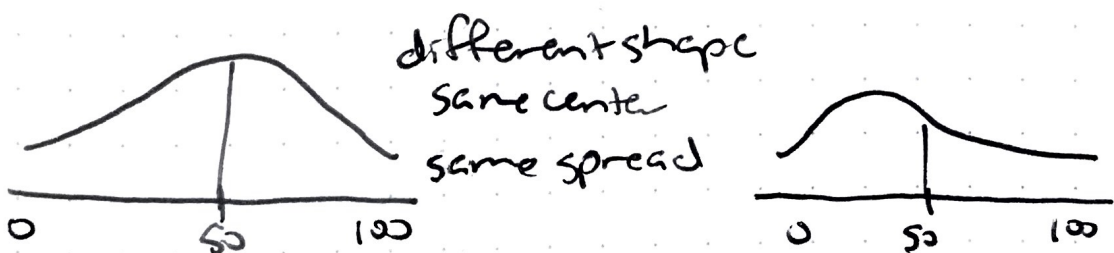 different shape
same center
same spread
0 50 100
0 50 100